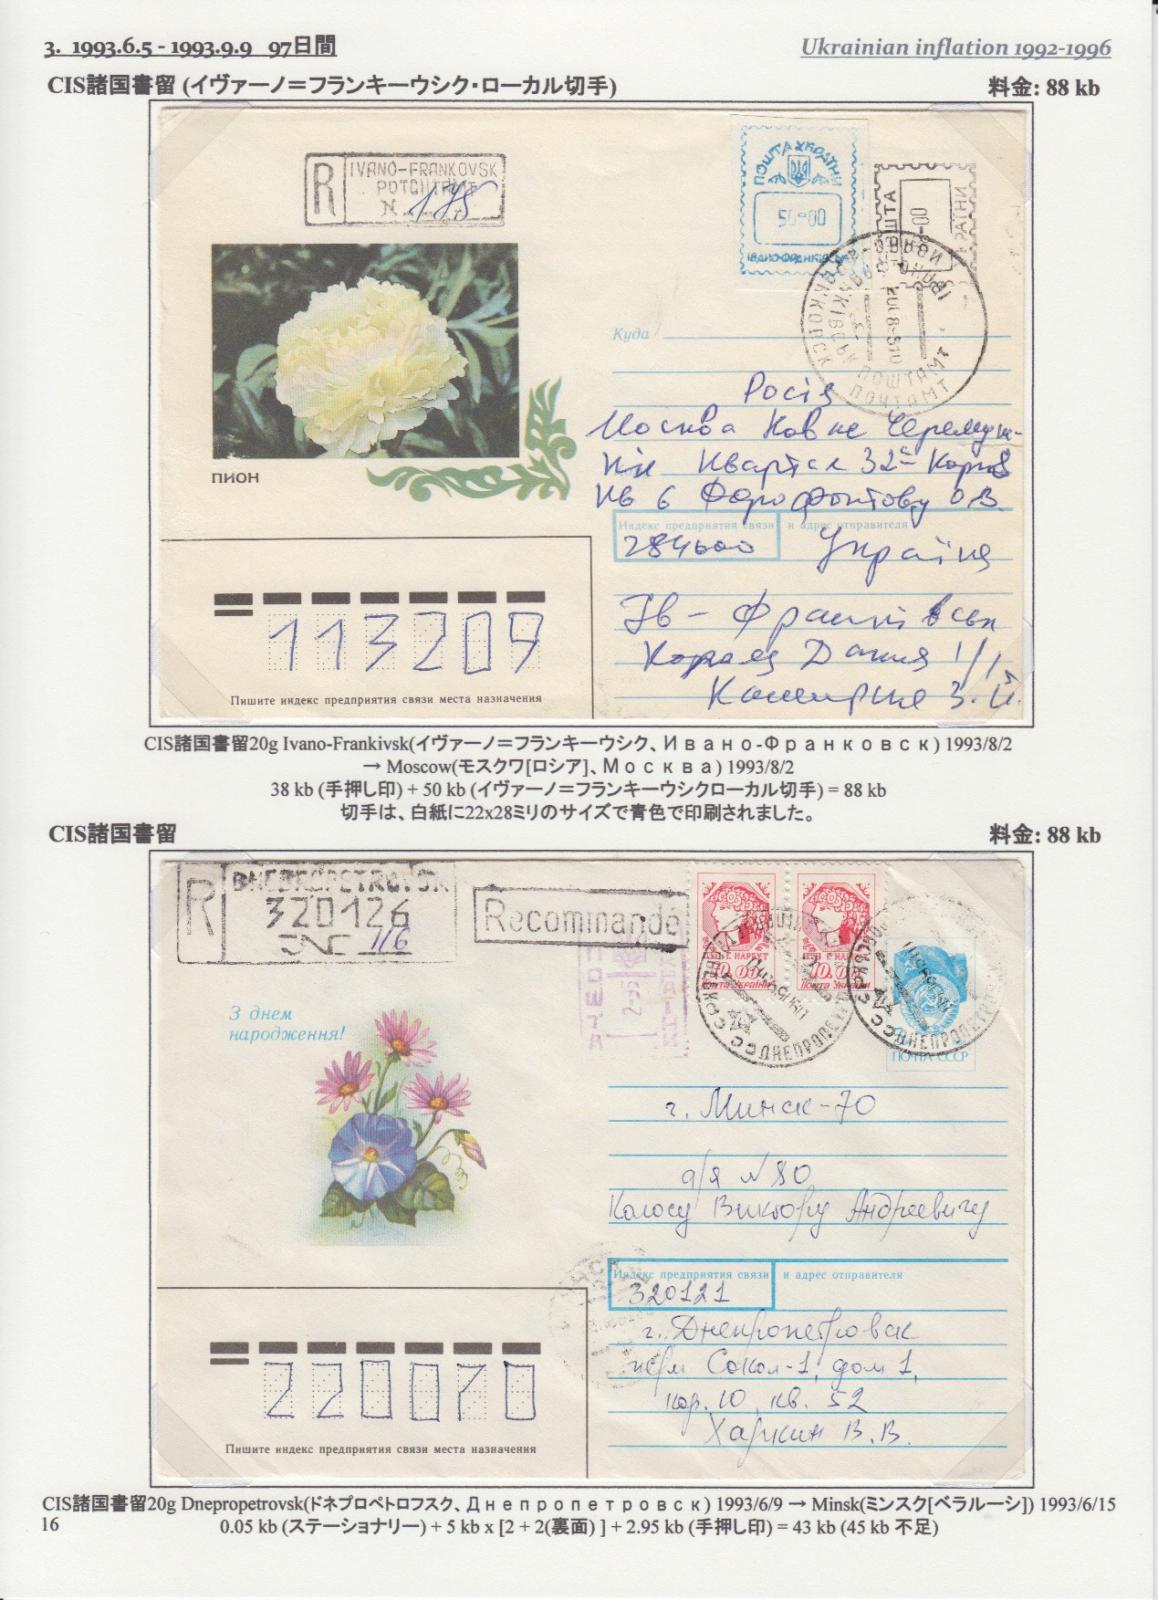 3. 1993.6.5 - 1993.9.9 97日間
Ukrainian inflation 1992-1996
CIS諸国書留 (イヴァーノ＝フランキーウシク・ローカル切手)
料金: 88 kb
R
IVANO-FRANKOVSK
N 175
ПОШТА УКРАЇНИ
50-00
ІВАНО-ФРАНКІВСЬК
ПОШТАМТ
ПОЧТАМТ
Куда
Росія
Москва
Квартал 32а Корпус
кв 6 О.В.
Индекс предприятия связи и адрес отправителя
284600 Україна
Ів - Франківськ
Данила 1/1
З. Й.
ПИОН
113209
Пишите индекс предприятия связи места назначения
CIS諸国書留20g Ivano-Frankivsk(イヴァーノ＝フランキーウシク、Ивано-Франковск) 1993/8/2
→ Moscow(モスクワ[ロシア]、Москва) 1993/8/2
38 kb (手押し印) + 50 kb (イヴァーノ＝フランキーウシクローカル切手) = 88 kb
切手は、白紙に22x28ミリのサイズで青色で印刷されました。
CIS諸国書留
料金: 88 kb
R
DNEPROPETROVSK
320126
116
Recommandé
10.00
10.00
Пошта України
Пошта України
ДНЕПРОПЕТРОВСК
ПОЧТА СССР
З днем
народження!
г. Минск-70
а/я №80
Колосу Виктору Андреевичу
Индекс предприятия связи и адрес отправителя
320121
г. Днепропетровск
Сокол-1, дом 1,
кор. 10, кв. 52
Харкин В.В.
220070
Пишите индекс предприятия связи места назначения
CIS諸国書留20g Dnepropetrovsk(ドネプロペトロフスク、Днепропетровск) 1993/6/9 → Minsk(ミンスク[ベラルーシ]) 1993/6/15
16
0.05 kb (ステーショナリー) + 5 kb x [2 + 2(裏面) ] + 2.95 kb (手押し印) = 43 kb (45 kb 不足)